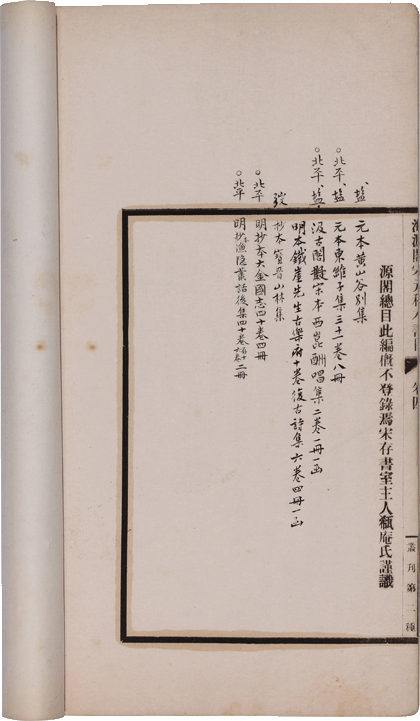 卷四
叢刊第二種
源閣總目此編概不登錄焉宋存書室主人瓻庵氏謹識
盐 元本黄山谷别集
○北平、盐、元本東維子集三十一卷八冊
○北平、盐、汲古閣影宋本西崑酬唱集二卷一冊一函
明本鐵崖先生古樂府十卷復古詩集六卷四冊一函
抄本寶晉山林集
○北平 明抄本大金國志四十卷四冊
○北平 明抄本漁隐叢話後集四十卷二冊